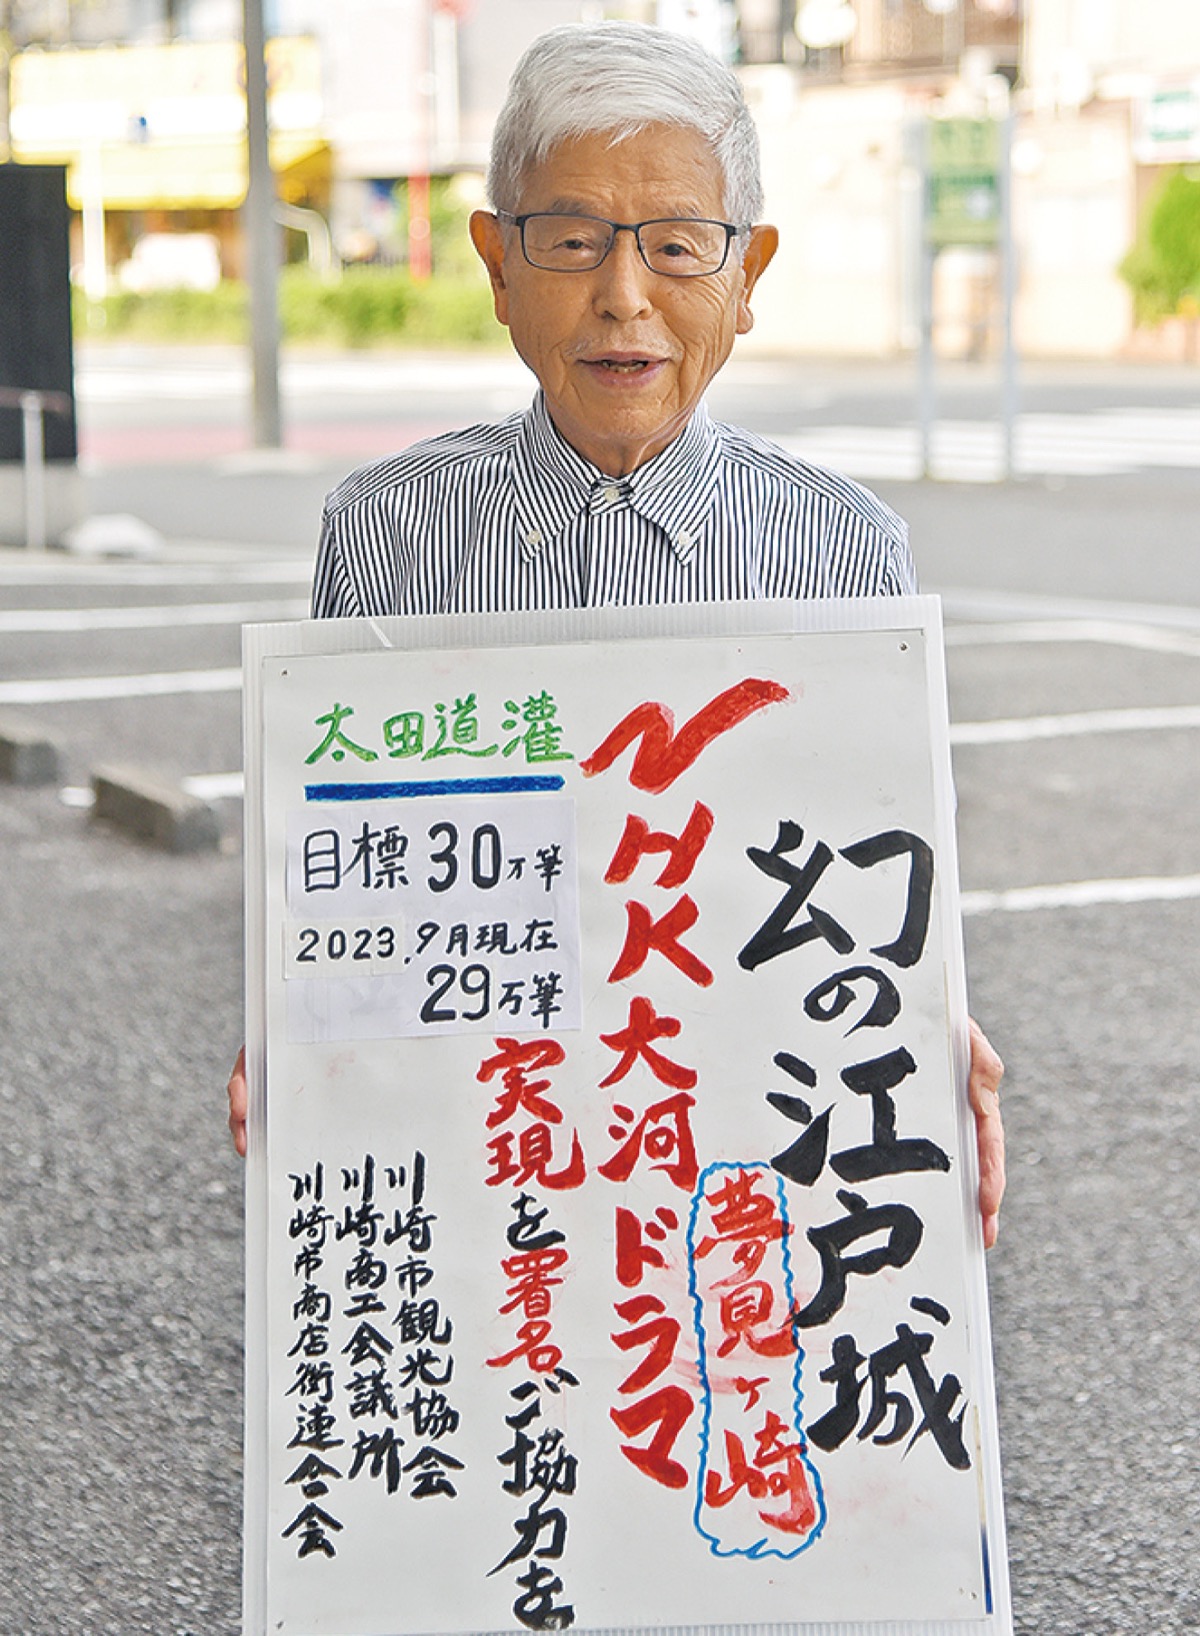 幻の江戸城
夢見ヶ崎
NHK大河ドラマ
太田道灌
目標30万筆
2023.9月現在
29万筆
実現を署名ご協力を
川崎市観光協会
川崎商工会議所
川崎市商店街連合会